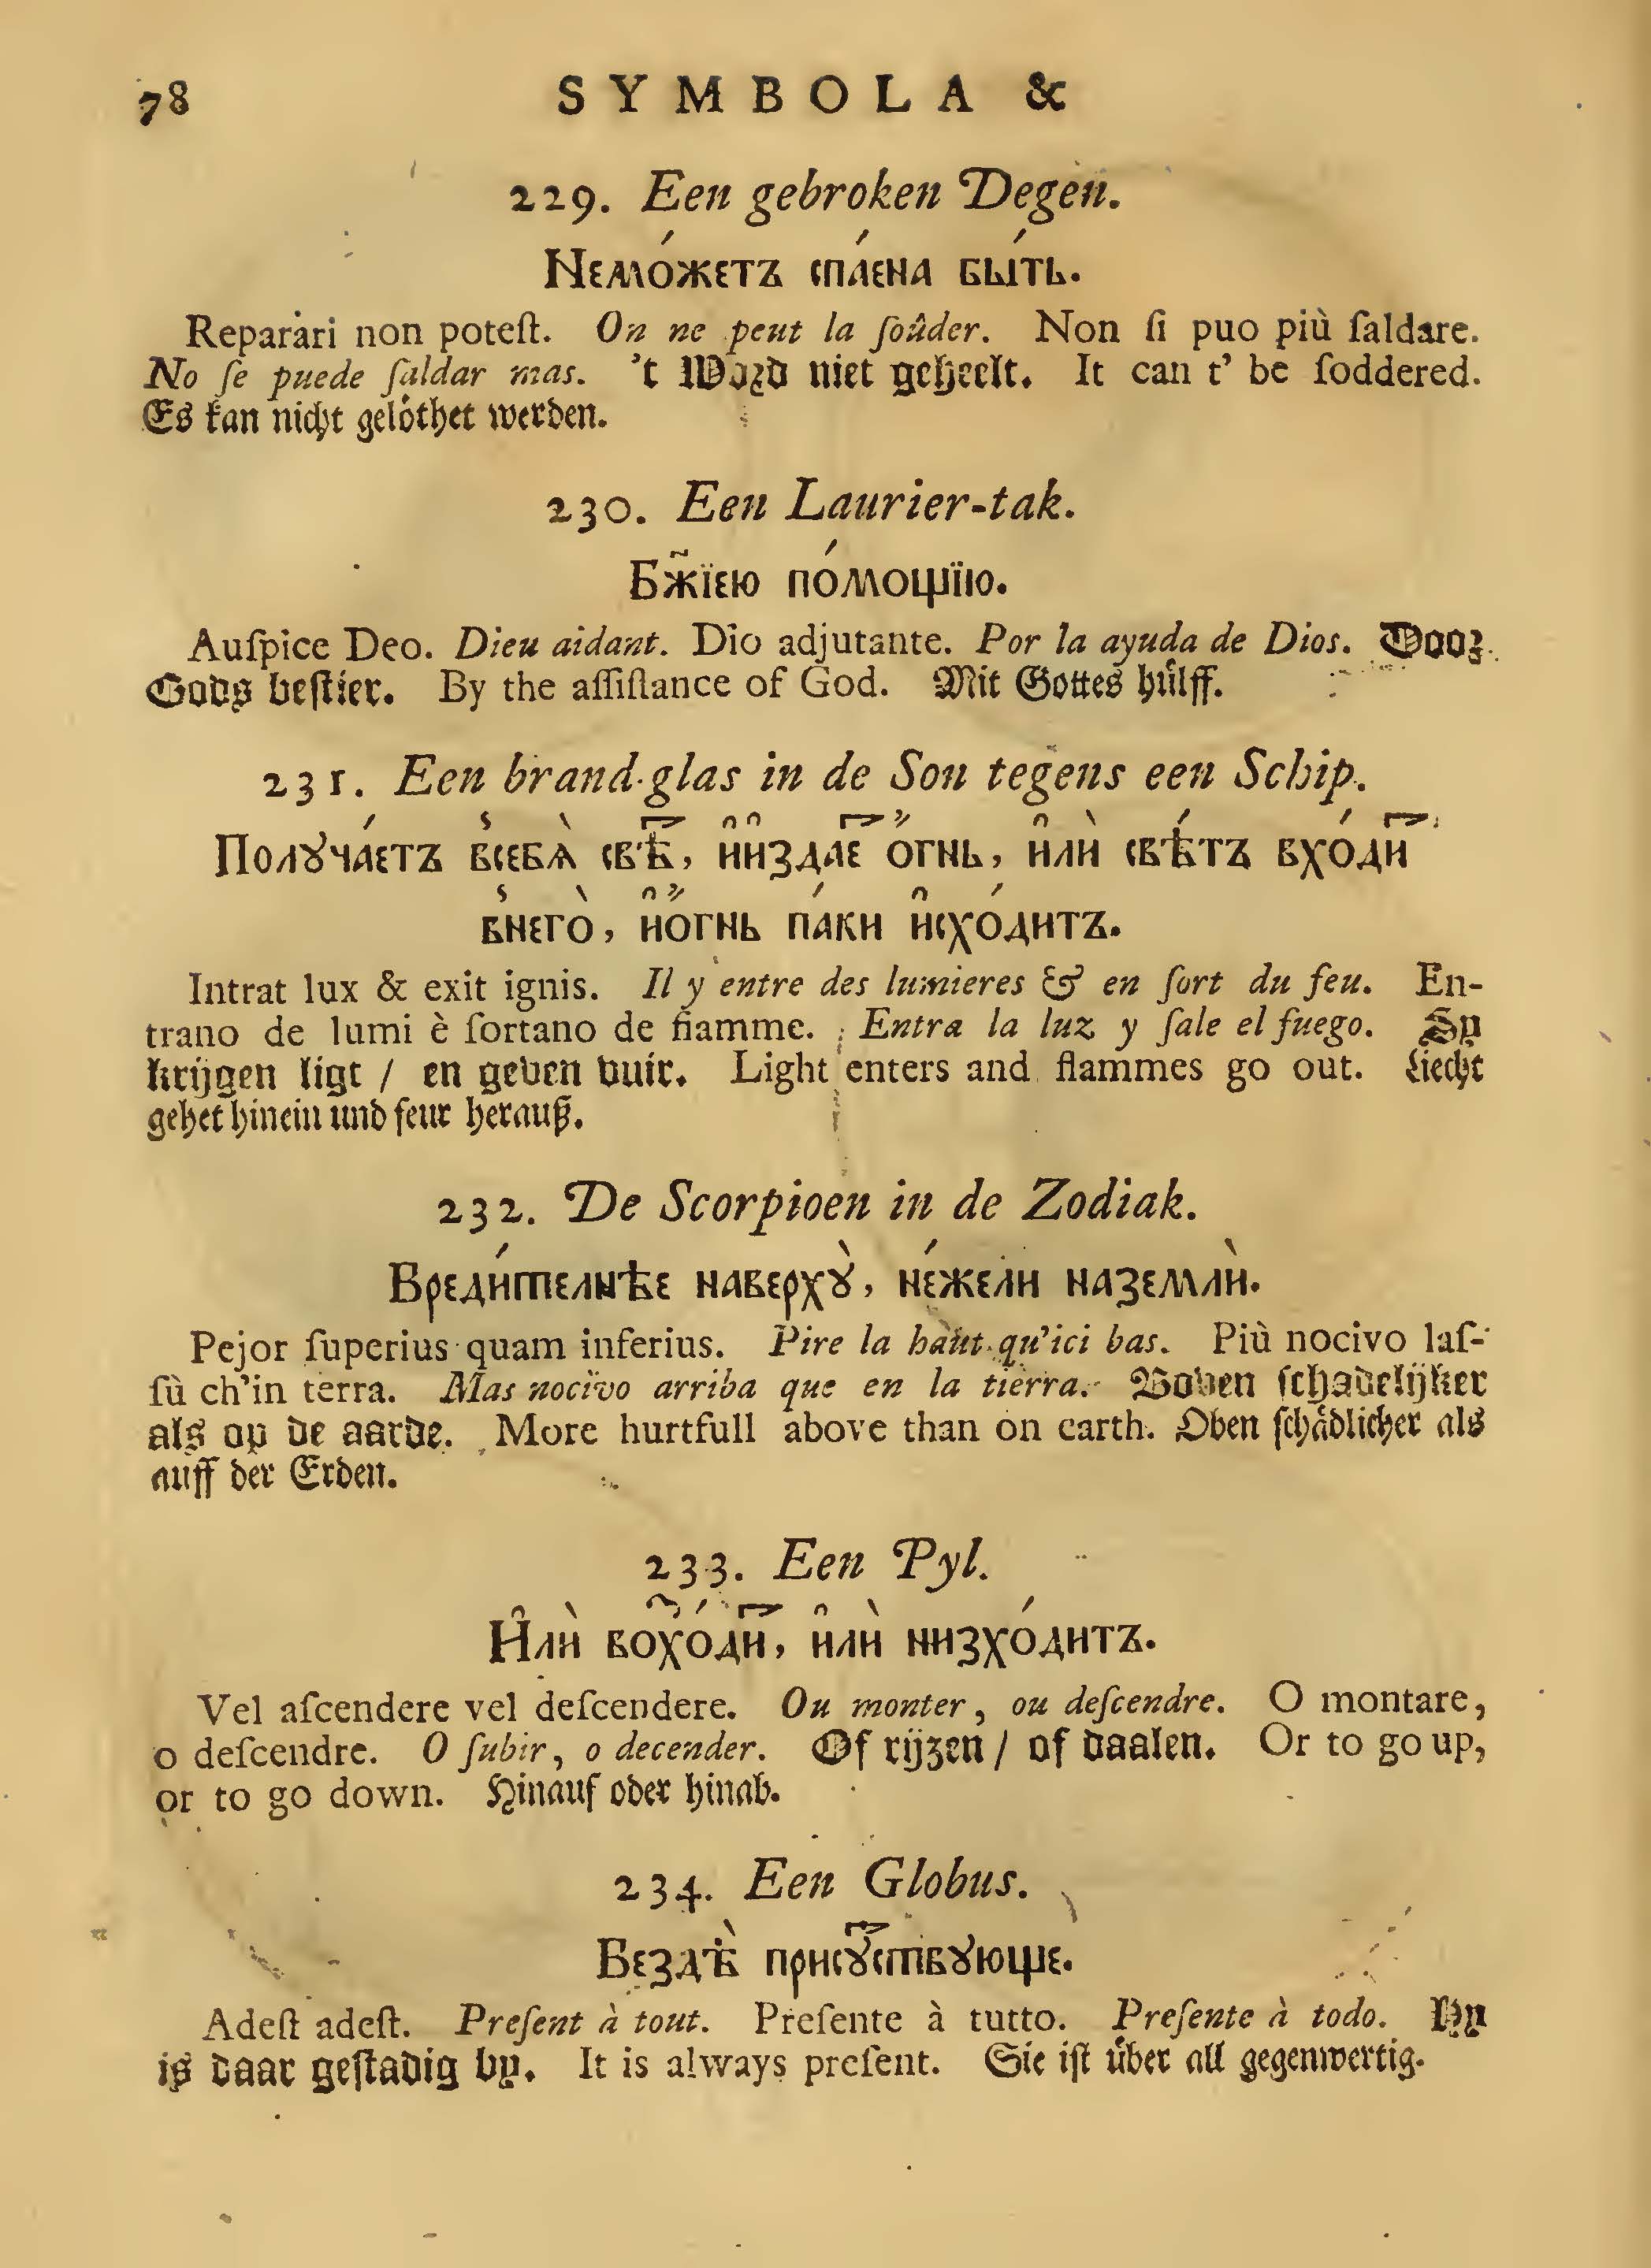 78 SYMBOLA &
229. Een gebroken Degen.
Немо́жетъ спа́ена бы́ть.
Reparari non poteſt. On ne peut la ſoûder. Non ſi puo più ſaldare.
No ſe puede ſaldar mas. 't Word niet geheelt. It can t' be ſoddered.
Es kan nicht gelöthet werden.
230. Een Laurier-tak.
Бж҃їею по́мощїю.
Auſpice Deo. Dieu aidant. Dio adjutante. Por la ayuda de Dios. Door
Gods beſtier. By the aſſiſtance of God. Mit Gottes hülff.
231. Een brand-glas in de Son tegens een Schip.
Полꙋча́етъ всебѧ̀ свѣ̑, и҆издае о҆гнь, и҆лѝ свѣ́тъ вхо́ди
внего̀, и҆о́гнь па́ки и҆схо́дитъ.
Intrat lux & exit ignis. Il y entre des lumieres & en ſort du feu. En-
trano de lumi è ſortano de fiamme. Entra la luz y ſale el fuego. Sy
krijgen ligt / en geven vuir. Light enters and flammes go out. Liecht
gehet hinein und feur herauß.
232. De Scorpioen in de Zodiak.
Вреди́телнѣе наверхꙋ̀, не́жели наземлѝ.
Pejor ſuperius quam inferius. Pire la haut qu'ici bas. Più nocivo laſ-
ſù ch'in terra. Mas nocivo arriba que en la tierra. Boven ſchadelijker
als op de aarde. More hurtfull above than on earth. Oben ſchädlicher als
auff der Erden.
233. Een Pyl.
И҆лѝ восхо́ди, и҆лѝ низхо́дитъ.
Vel aſcendere vel deſcendere. Ou monter, ou deſcendre. O montare,
o deſcendre. O ſubir, o decender. Of rijzen / of daalen. Or to go up,
or to go down. Hinauf oder hinab.
234. Een Globus.
Вездѣ̀ присꙋствꙋюще.
Adeſt adeſt. Preſent à tout. Preſente à tutto. Preſente à todo. Hy
is daar geſtadig by. It is always preſent. Sie iſt über all gegenwertig.